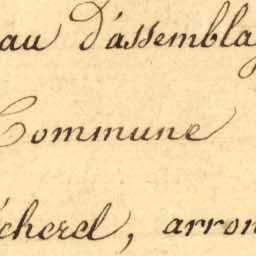 au d'assembla
Commune
écherel, arron